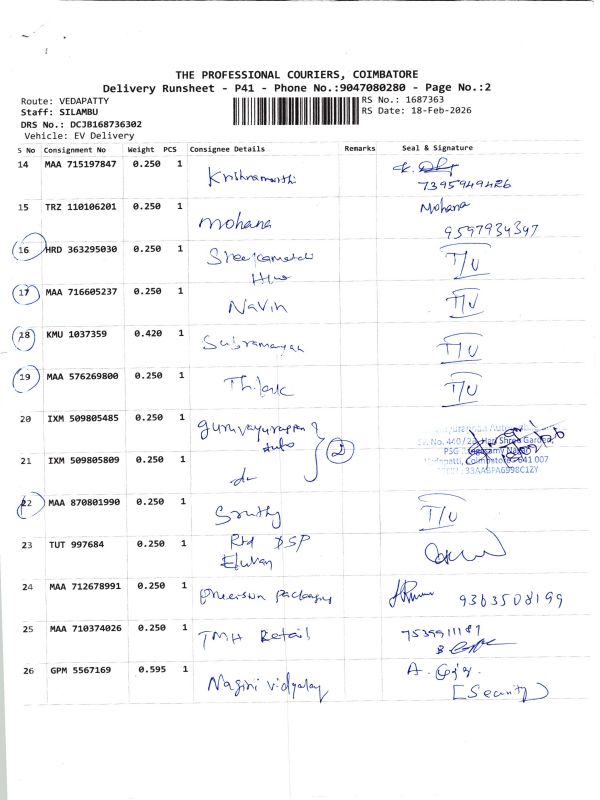 THE PROFESSIONAL COURIERS, COIMBATORE
Delivery Runsheet - P41 - Phone No.:9047080280 - Page No.:2
Route: VEDAPATTY
RS No.: 1687363
Staff: SILAMBU
RS Date: 18-Feb-2026
DRS No.: DCJB168736302
Vehicle: EV Delivery
S No Consignment No Weight PCS Consignee Details Remarks Seal & Signature
14 MAA 715197847 0.250 1 Krishnamoorthi
7395949426
15 TRZ 110106201 0.250 1 Mohana Mohana
9597934347
16 HRD 363295030 0.250 1 T/U
17 MAA 716605237 0.250 1 Navin T/U
18 KMU 1037359 0.420 1 T/U
19 MAA 576269800 0.250 1 T/U
20 IXM 509805485 0.250 1 Guruvayurappan
2
21 IXM 509805809 0.250 1
No. 440/2
PSG
Coimbatore 641 007
33AASPA6998C1ZY
22 MAA 870801990 0.250 1 Sruthy T/U
23 TUT 997684 0.250 1 Rtd DSP
24 MAA 712678991 0.250 1 9363508199
25 MAA 710374026 0.250 1 TMH Retail 7539911187
26 GPM 5567169 0.595 1 Nagini vidyalay A.
[Security]